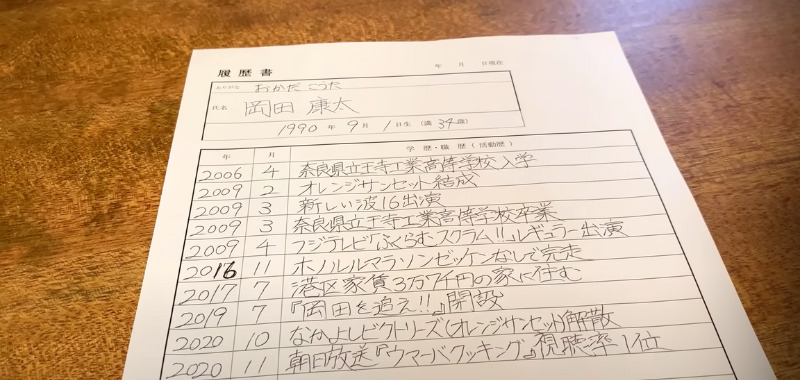 履歴書 年 月 日現在
ふりがな おかだ こうた
氏名 岡田 康太
1990 年 9 月 1 日生 (満 34 歳)
年 月 学歴・職歴(活動歴)
2006 4 奈良県立王寺工業高等学校入学
2009 2 オレンジサンセット結成
2009 3 新しい波16出演
2009 3 奈良県立王寺工業高等学校卒業
2009 4 フジテレビ「ふくらむスクラム!!」レギュラー出演
2016 11 ホノルルマラソンゼッケンなしで完走
2017 7 港区家賃3万7千円の家に住む
2019 7 『岡田を追え!!』開設
2020 10 なかよしビクトリーズ(オレンジサンセット)解散
2020 11 朝日放送『ウマーバクッキング』視聴率1位